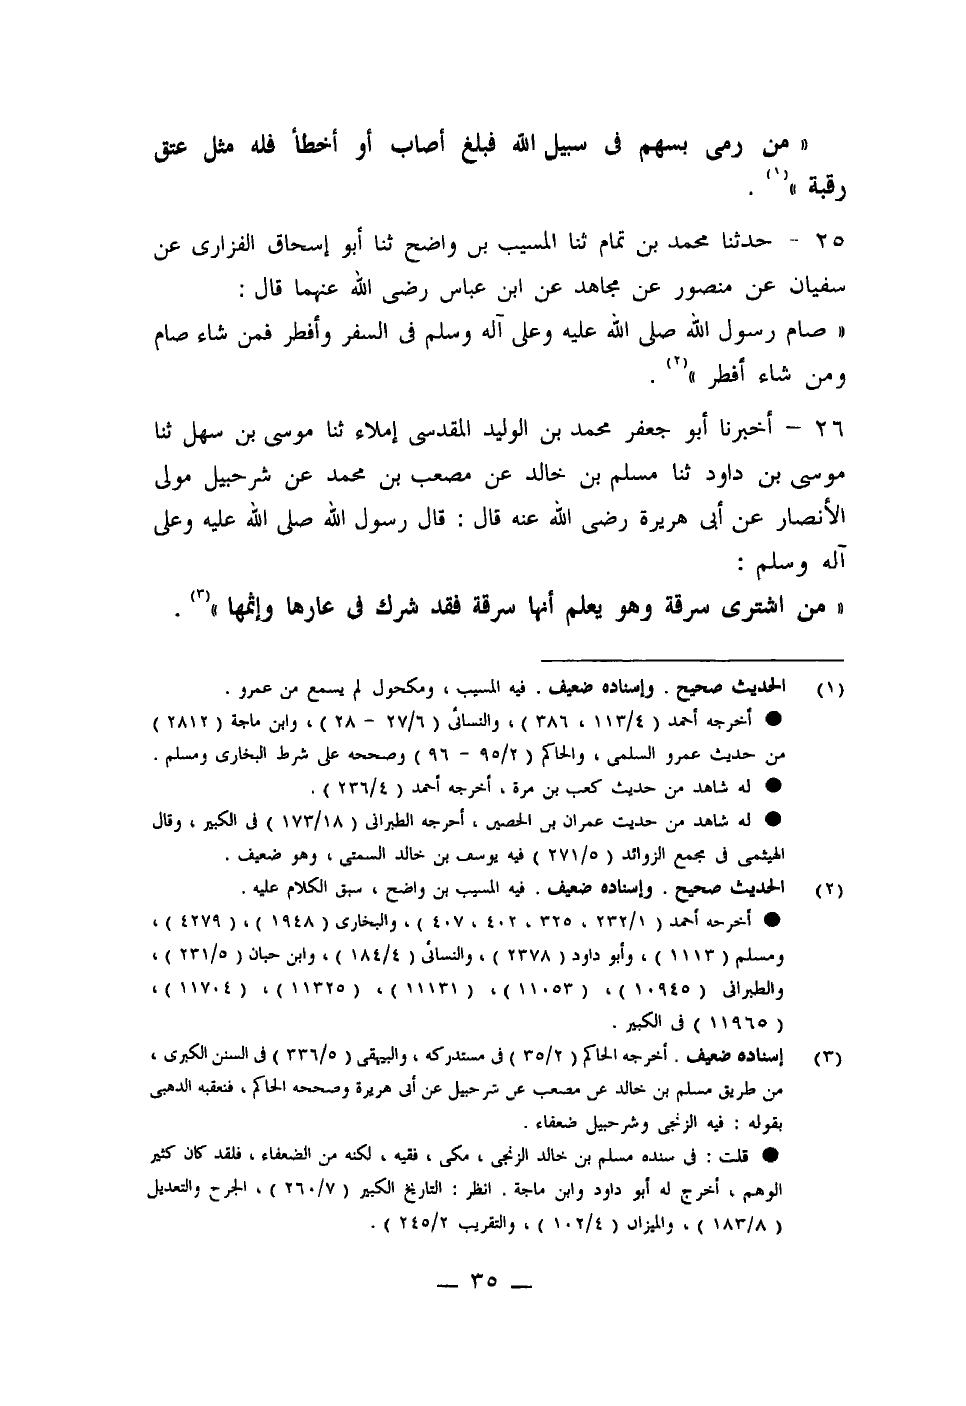 « من رمى بسهم فى سبيل الله فبلغ أصاب أو أخطأ فله مثل عتق
رقبة »(١) .
٢٥ - حدثنا محمد بن تمام ثنا المسيب بن واضح ثنا أبو إسحاق الفزارى عن
سفيان عن منصور عن مجاهد عن ابن عباس رضى الله عنهما قال :
« صام رسول الله صلى الله عليه وعلى آله وسلم فى السفر وأفطر فمن شاء صام
ومن شاء أفطر »(٢) .
٢٦ - أخبرنا أبو جعفر محمد بن الوليد المقدسى إملاء ثنا موسى بن سهل ثنا
موسى بن داود ثنا مسلم بن خالد عن مصعب بن محمد عن شرحبيل مولى
الأنصار عن أبى هريرة رضى الله عنه قال : قال رسول الله صلى الله عليه وعلى
آله وسلم :
« من اشترى سرقة وهو يعلم أنها سرقة فقد شرك فى عارها وإثمها »(٣) .
(١) الحديث صحيح . وإسناده ضعيف . فيه المسيب ، ومكحول لم يسمع من عمرو .
● أخرجه أحمد ( ١١٣/٤ ، ٣٨٦ ) ، والنسائى ( ٢٧/٦ - ٢٨ ) ، وابن ماجة ( ٢٨١٢ )
من حديث عمرو السلمى ، والحاكم ( ٩٥/٢ - ٩٦ ) وصححه على شرط البخارى ومسلم .
● له شاهد من حديث كعب بن مرة ، أخرجه أحمد ( ٢٣٦/٤ ) .
● له شاهد من حديث عمران بن الحصين ، أخرجه الطبرانى ( ١٧٣/١٨ ) فى الكبير ، وقال
الهيثمى فى مجمع الزوائد ( ٢٧١/٥ ) فيه يوسف بن خالد السمتى ، وهو ضعيف .
(٢) الحديث صحيح . وإسناده ضعيف . فيه المسيب بن واضح ، سبق الكلام عليه .
● أخرجه أحمد ( ٢٣٢/١ ، ٣٢٥ ، ٤٠٢ ، ٤٠٧ ) ، والبخارى ( ١٩٤٨ ) ، ( ٤٢٧٩ ) ،
ومسلم ( ١١١٣ ) ، وأبو داود ( ٢٣٧٨ ) ، والنسائى ( ١٨٤/٤ ) ، وابن حبان ( ٢٣١/٥ ) ،
والطبرانى ( ١٠٩٤٥ ) ، ( ١١٠٥٣ ) ، ( ١١١٣١ ) ، ( ١١٣٢٥ ) ، ( ١١٧٠٤ ) ،
( ١١٩٦٥ ) فى الكبير .
(٣) إسناده ضعيف . أخرجه الحاكم ( ٣٥/٢ ) فى مستدركه ، والبيهقى ( ٣٣٦/٥ ) فى السنن الكبرى ،
من طريق مسلم بن خالد عن مصعب عن شرحبيل عن أبى هريرة وصححه الحاكم ، فتعقبه الذهبى
بقوله : فيه الزنجى وشرحبيل ضعفاء .
● قلت : فى سنده مسلم بن خالد الزنجى ، مكى ، فقيه ، لكنه من الضعفاء ، فلقد كان كثير
الوهم ، أخرج له أبو داود وابن ماجة . انظر : التاريخ الكبير ( ٢٦٠/٧ ) ، الجرح والتعديل
( ١٨٣/٨ ) ، والميزان ( ١٠٢/٤ ) ، والتقريب ( ٢٤٥/٢ ) .
ــ ٣٥ ــ